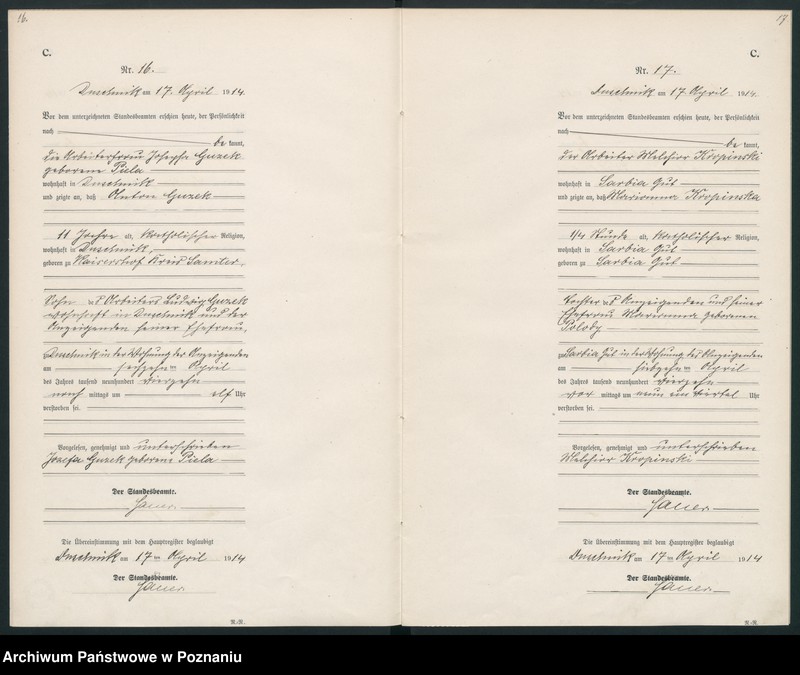 16.
C.
Nr. 16.
Duschnik am 17. April 1914.
Vor dem unterzeichneten Standesbeamten erschien heute, der Persönlichkeit
nach
be kannt,
die Arbeiterfrau Josepha Guzek
geborene Piela
wohnhaft in Duschnik
und zeigte an, daß Anton Guzek
11 Jahre alt, katholischer Religion,
wohnhaft in Duschnik,
geboren zu Kaisershof Kreis Samter,
Sohn des Arbeiters Ludwig Guzek
wohnhaft in Duschnik und der
Anzeigenden seiner Ehefrau,
Duschnik in der Wohnung der Anzeigenden
am sechzehnten April
des Jahres tausend neunhundert vierzehn
nach mittags um elf Uhr
verstorben sei.
Vorgelesen, genehmigt und unterschrieben
Jozefa Guzek geborene Piela
Der Standesbeamte.
Die Übereinstimmung mit dem Hauptregister beglaubigt
Duschnik am 17ten April 1914
Der Standesbeamte.
R.-R.
17
C.
Nr. 17.
Duschnik am 17. April 1914.
Vor dem unterzeichneten Standesbeamten erschien heute, der Persönlichkeit
nach
be kannt,
der Arbeiter Melchior Kropinski
wohnhaft in Sarbia Gut
und zeigte an, daß Marianna Kropinska
1/4 Stunde alt, katholischer Religion,
wohnhaft in Sarbia Gut
geboren zu Sarbia Gut
Tochter des Anzeigenden und seiner
Ehefrau Marianna geborenen
zu Sarbia Gut in der Wohnung des Anzeigenden
am siebzehnten April
des Jahres tausend neunhundert vierzehn
vor mittags um neun ein viertel Uhr
verstorben sei.
Vorgelesen, genehmigt und unterschrieben
Melchior Kropinski
Der Standesbeamte.
Die Übereinstimmung mit dem Hauptregister beglaubigt
Duschnik am 17ten April 1914
Der Standesbeamte.
R.-R.
Archiwum Państwowe w Poznaniu